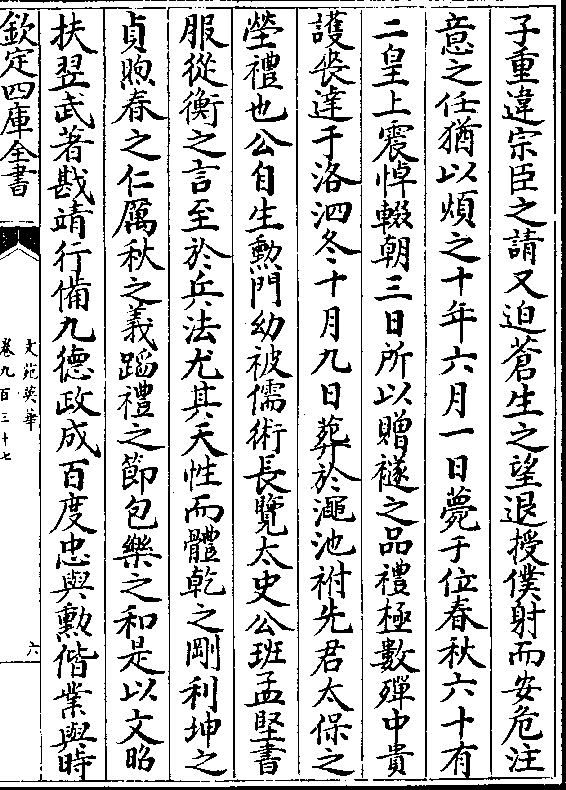 子重違宗臣之請又迫蒼生之望退授僕射而安危注
意之任猶以煩之十年六月一日薨于位春秋六十有
二皇上震悼輟朝三日所以贈襚之品禮極數殫中貴
護喪達于洛泗冬十月九日葬於澠池祔先君太保之
塋禮也公自生勲門幼被儒術長覽太史公班孟堅書
服從衡之言至於兵法尤其天性而體乾之剛利坤之
貞煦春之仁厲秋之義蹈禮之節包樂之和是以文昭
扶翌武著戡靖行備九德政成百度忠與勲偕業與時
欽定四庫全書
文苑英華
卷九百三十七
六